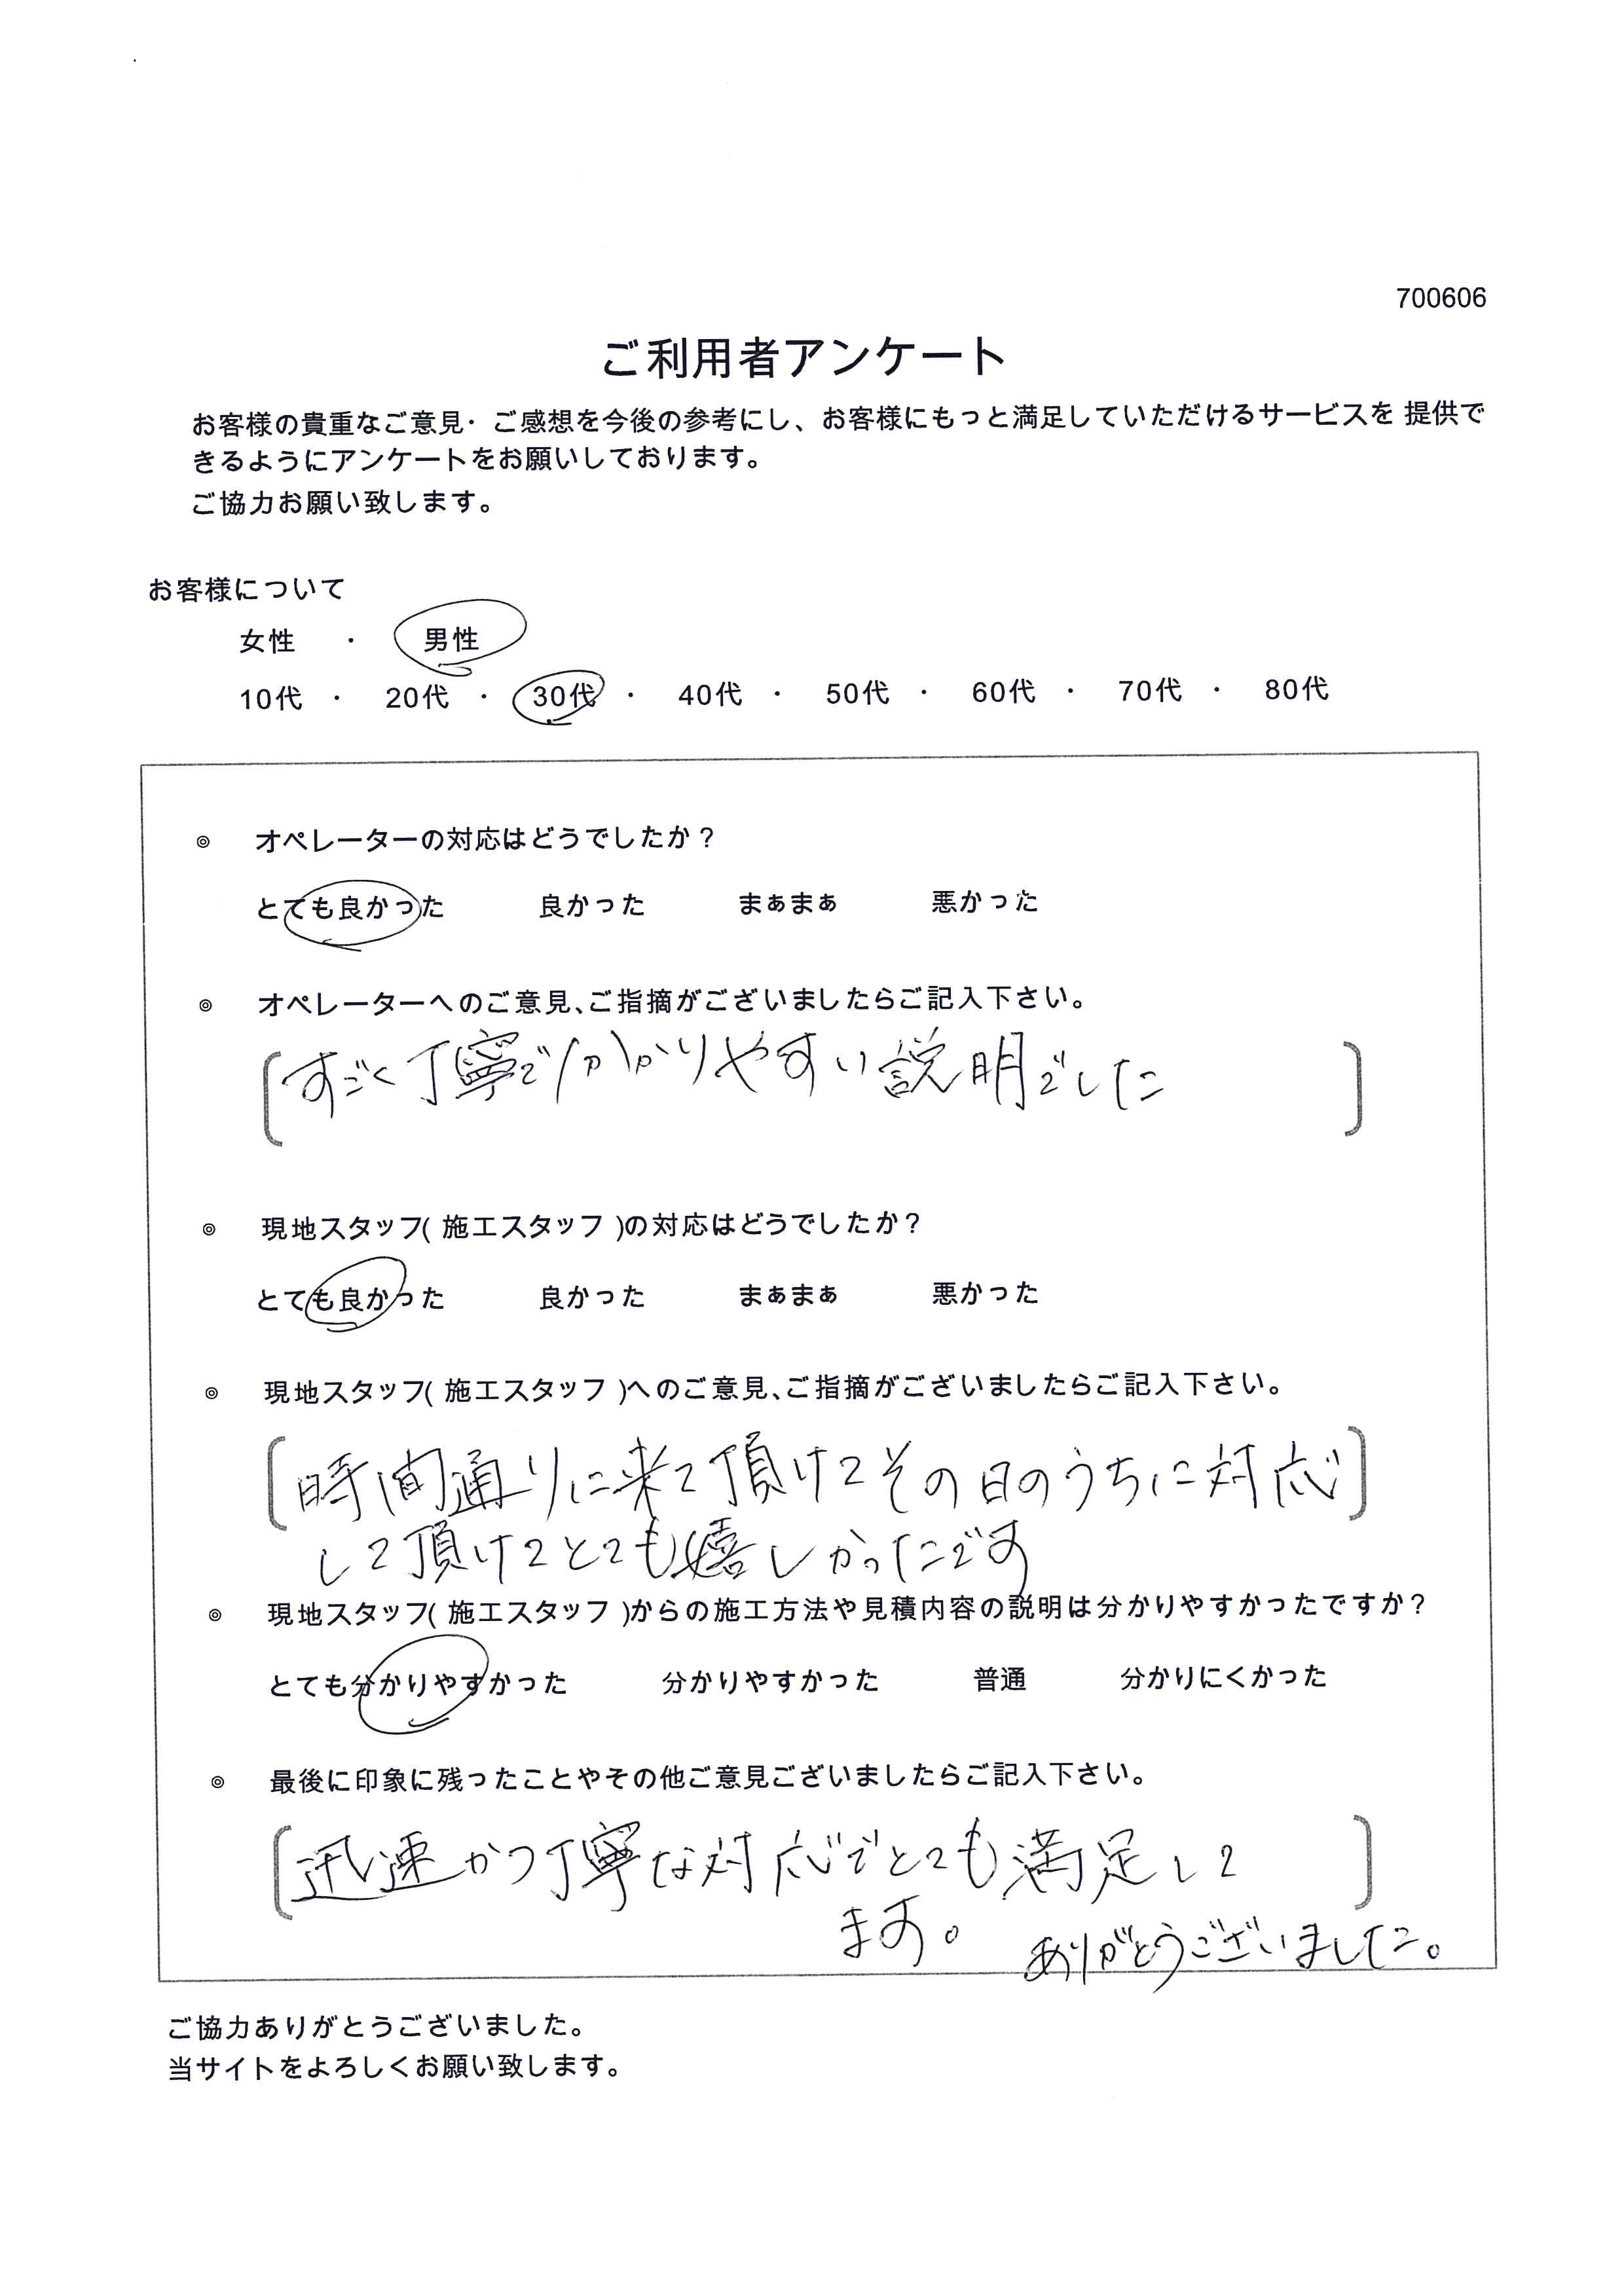 700606
ご利用者アンケート
お客様の貴重なご意見・ご感想を今後の参考にし、お客様にもっと満足していただけるサービスを 提供で
きるようにアンケートをお願いしております。
ご協力お願い致します。
お客様について
女性 ・ 男性
10代 ・ 20代 ・ 30代 ・ 40代 ・ 50代 ・ 60代 ・ 70代 ・ 80代
◎ オペレーターの対応はどうでしたか？
とても良かった 良かった まぁまぁ 悪かった
◎ オペレーターへのご意見、ご指摘がございましたらご記入下さい。
すごく丁寧で分かりやすい説明でした
◎ 現地スタッフ( 施工スタッフ )の対応はどうでしたか？
とても良かった 良かった まぁまぁ 悪かった
◎ 現地スタッフ( 施工スタッフ )へのご意見、ご指摘がございましたらご記入下さい。
時間通りに来て頂けてその日のうちに対応
して頂けてとても嬉しかったです
◎ 現地スタッフ( 施工スタッフ )からの施工方法や見積内容の説明は分かりやすかったですか？
とても分かりやすかった 分かりやすかった 普通 分かりにくかった
◎ 最後に印象に残ったことやその他ご意見ございましたらご記入下さい。
迅速かつ丁寧な対応でとても満足して
ます。 ありがとうございました。
ご協力ありがとうございました。
当サイトをよろしくお願い致します。